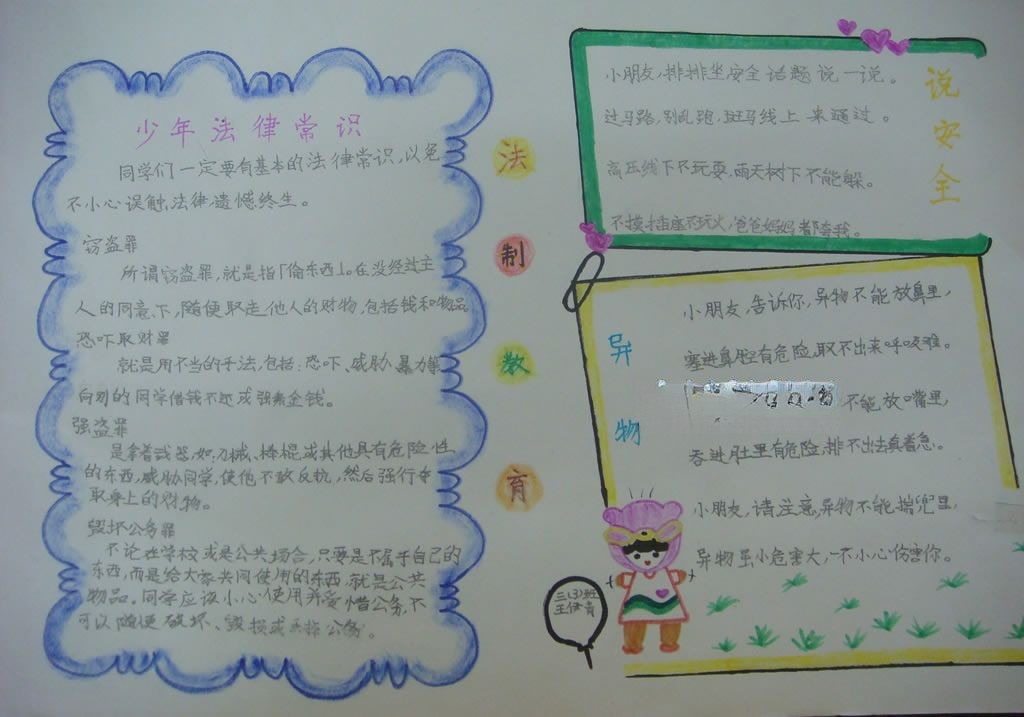 少年法律常识
同学们一定要有基本的法律常识,以免
不小心误触法律遗憾终生。
窃盗罪
所谓窃盗罪,就是指「偷东西」。在没经过主
人的同意下,随便取走他人的财物,包括钱和物品
恐吓取财罪
就是用不当的手法,包括:恐吓、威胁、暴力等
向别的同学借钱不还或强索金钱。
强盗罪
是拿着武器,如刀械、棒棍或其他具有危险性
的东西,威胁同学,使他不敢反抗,然后强行夺
取身上的财物。
毁坏公务罪
不论在学校或是公共场合,只要是不属于自己的
东西,而是给大家共同使用的东西,就是公共
物品。同学应该小心使用并爱惜公务,不
可以随便破坏、毁损或丢掉公务。
法
制
教
育
说安全
小朋友,排排坐,安全话题说一说。
过马路,别乱跑,斑马线上来通过。
高压线下不玩耍,雨天树下不能躲。
不摸插座不玩火,爸爸妈妈都夸我。
异物
小朋友,告诉你,异物不能放鼻里,
塞进鼻腔有危险,取不出来呼吸难。
不能放嘴里,
吞进肚里有危险,排不出去真着急。
小朋友,请注意,异物不能揣兜里,
异物虽小危害大,一不小心伤害你。
三(3)班